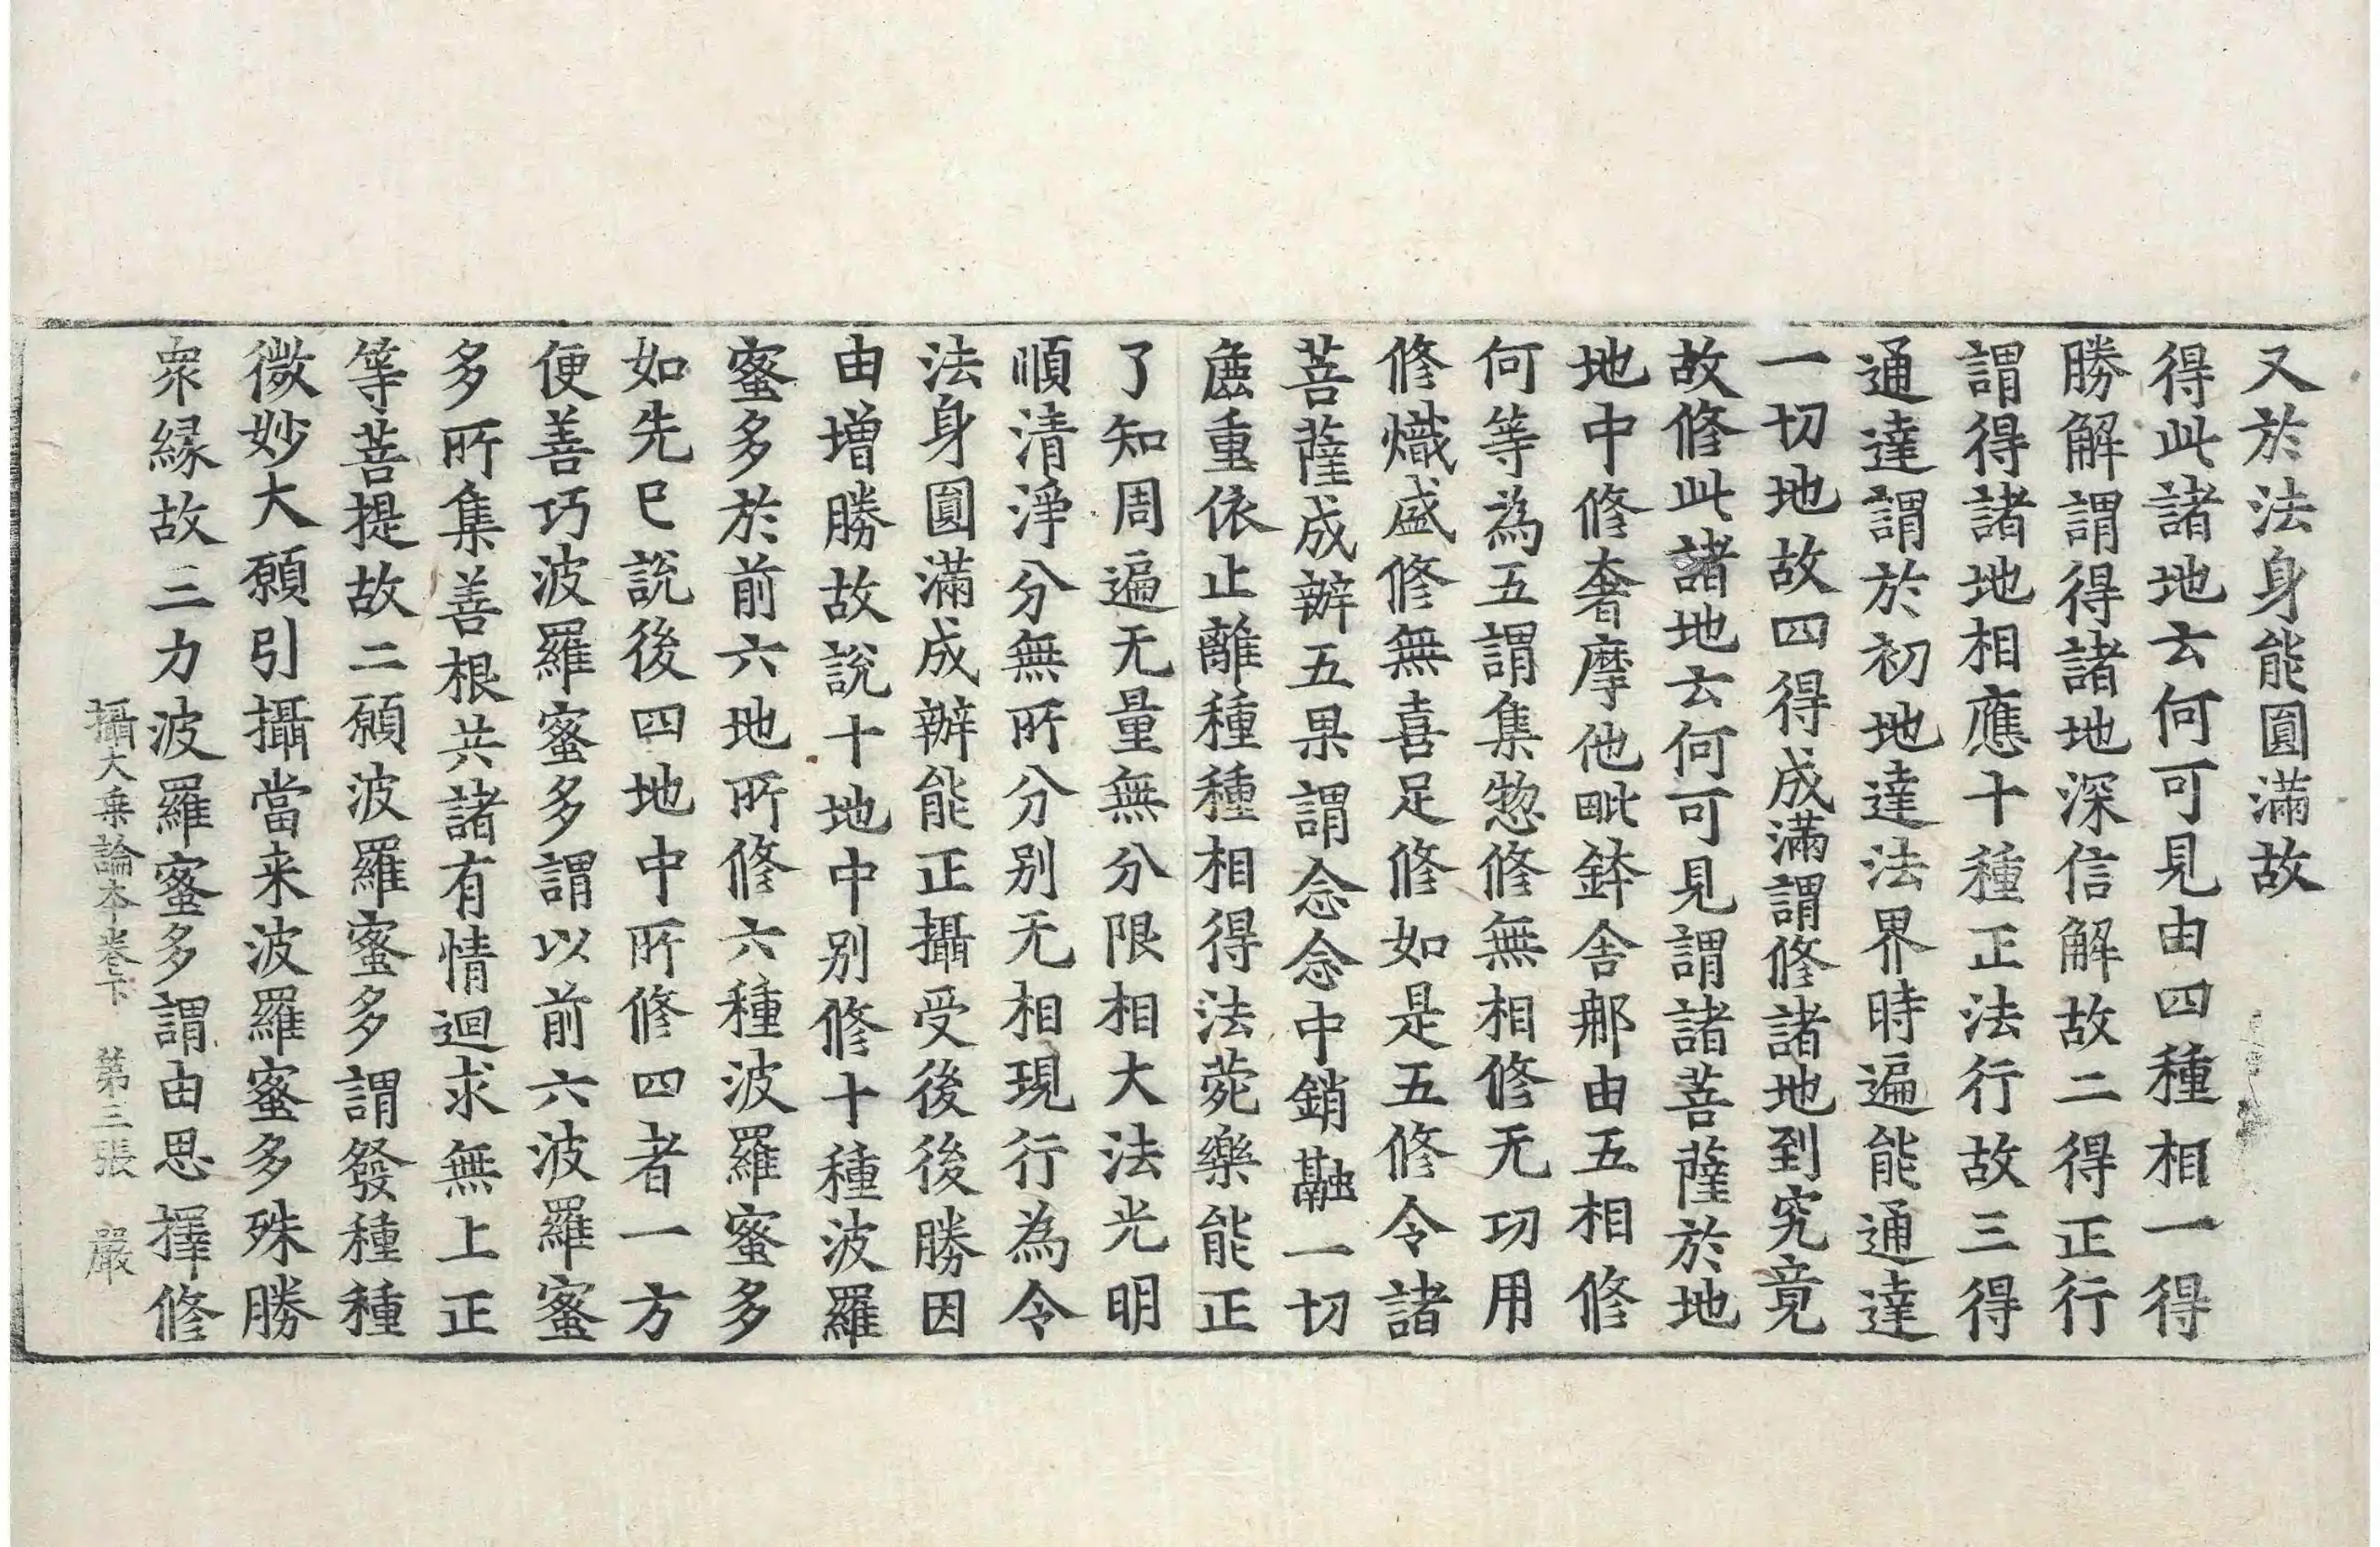 又於法身能圓滿故
得此諸地云何可見由四種相一得
勝解謂得諸地深信解故二得正行
謂得諸地相應十種正法行故三得
通達謂於初地達法界時遍能通達
一切地故四得成滿謂修諸地到究竟
故修此諸地云何可見謂諸菩薩於地
地中修奢摩他毗鉢舍那由五相修
何等為五謂集惣修無相修无功用
修熾盛修無喜足修如是五修令諸
菩薩成辦五果謂念念中銷融一切
麁重依止離種種相得法菀樂能正
了知周遍无量無分限相大法光明
順清淨分無所分别无相現行為令
法身圓滿成辦能正攝受後後勝因
由增勝故說十地中别修十種波羅
蜜多於前六地所修六種波羅蜜多
如先已說後四地中所修四者一方
便善巧波羅蜜多謂以前六波羅蜜
多所集善根共諸有情迴求無上正
等菩提故二願波羅蜜多謂發種種
微妙大願引攝當来波羅蜜多殊勝
衆縁故三力波羅蜜多謂由思擇修
攝大乗論本卷下 第三張 嚴